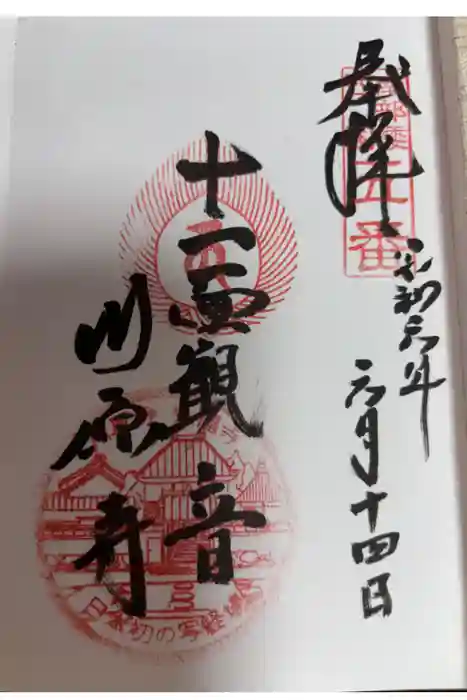 奉拝
令和六年
六月十四日
十一面観音
川原寺
五番
日本初の写経道場